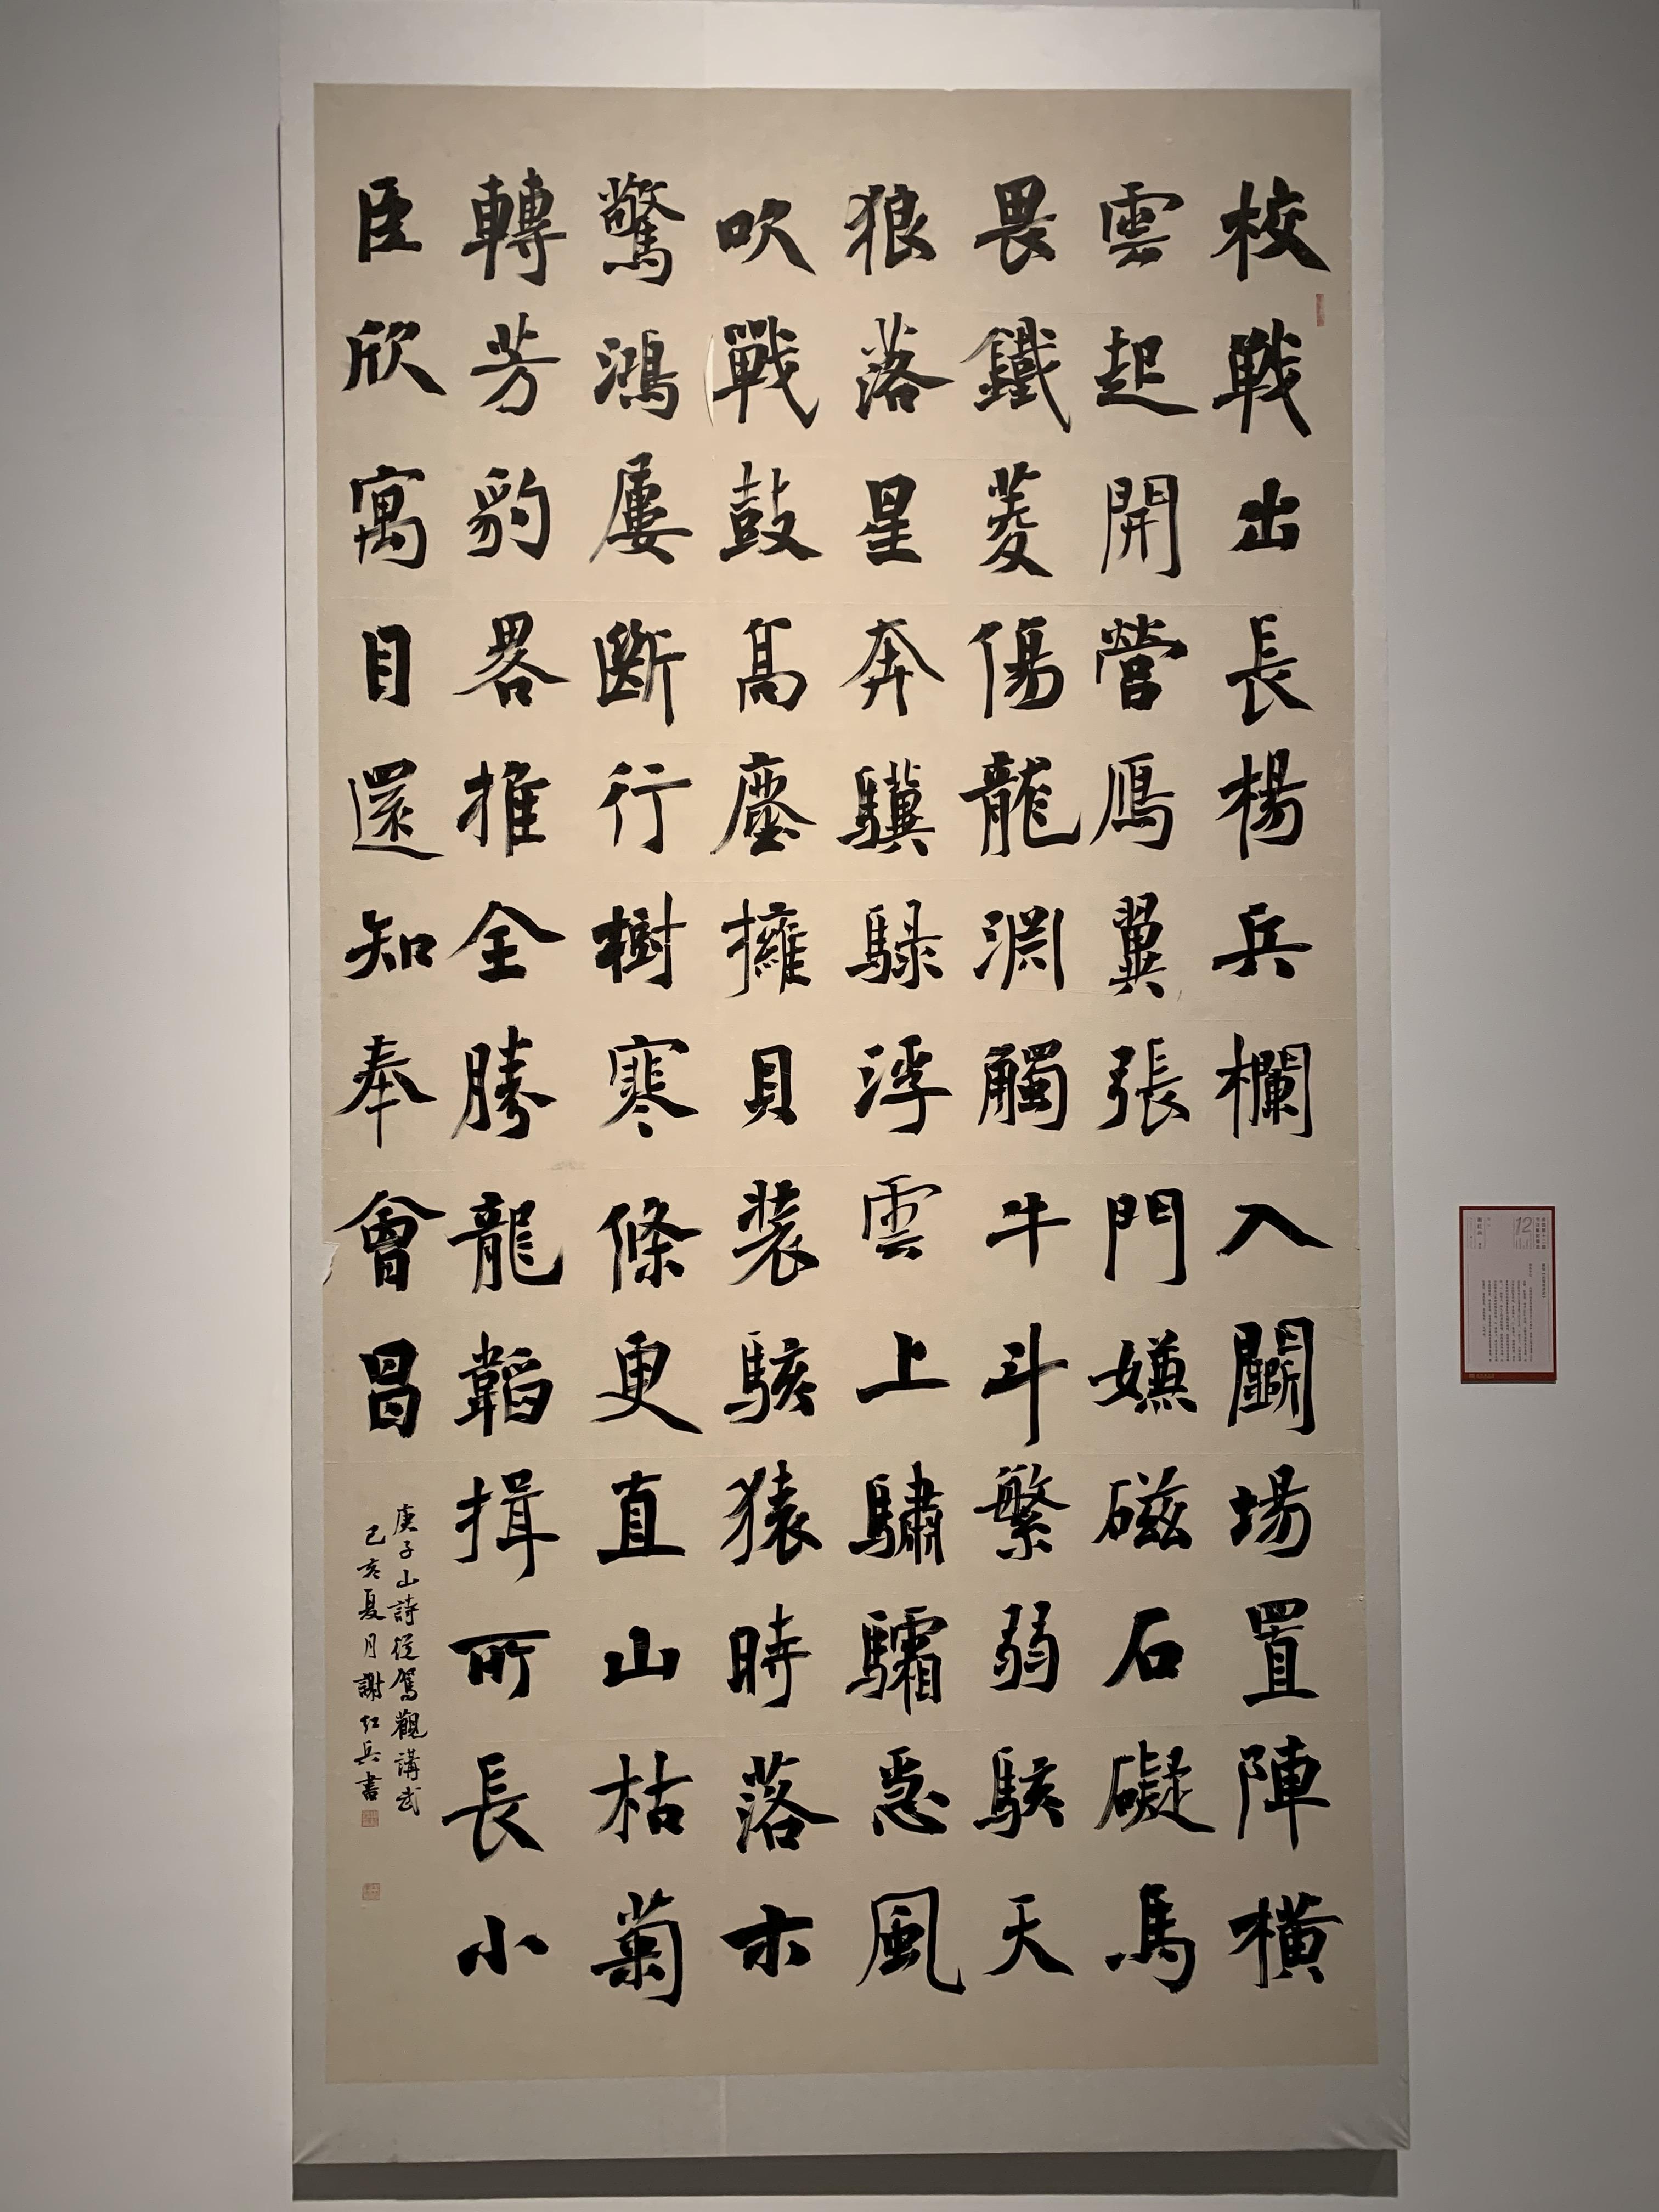 校戰出長楊兵欄入鬬場置陣橫
雲起開營鴈翼張門嫌磁石礙馬
畏鐵菱傷龍淵觸牛斗繁弱駭天
狼落星奔驥騄浮雲上驌驦惡風
吹戰鼓髙塵擁貝装駭猿時落木
驚鴻屢斷行樹寒條更直山枯菊
轉芳豹畧推全勝龍韜揖所長小
臣欣寓目還知奉會昌
庾子山詩從駕觀講武
己亥夏月謝紅兵書
12